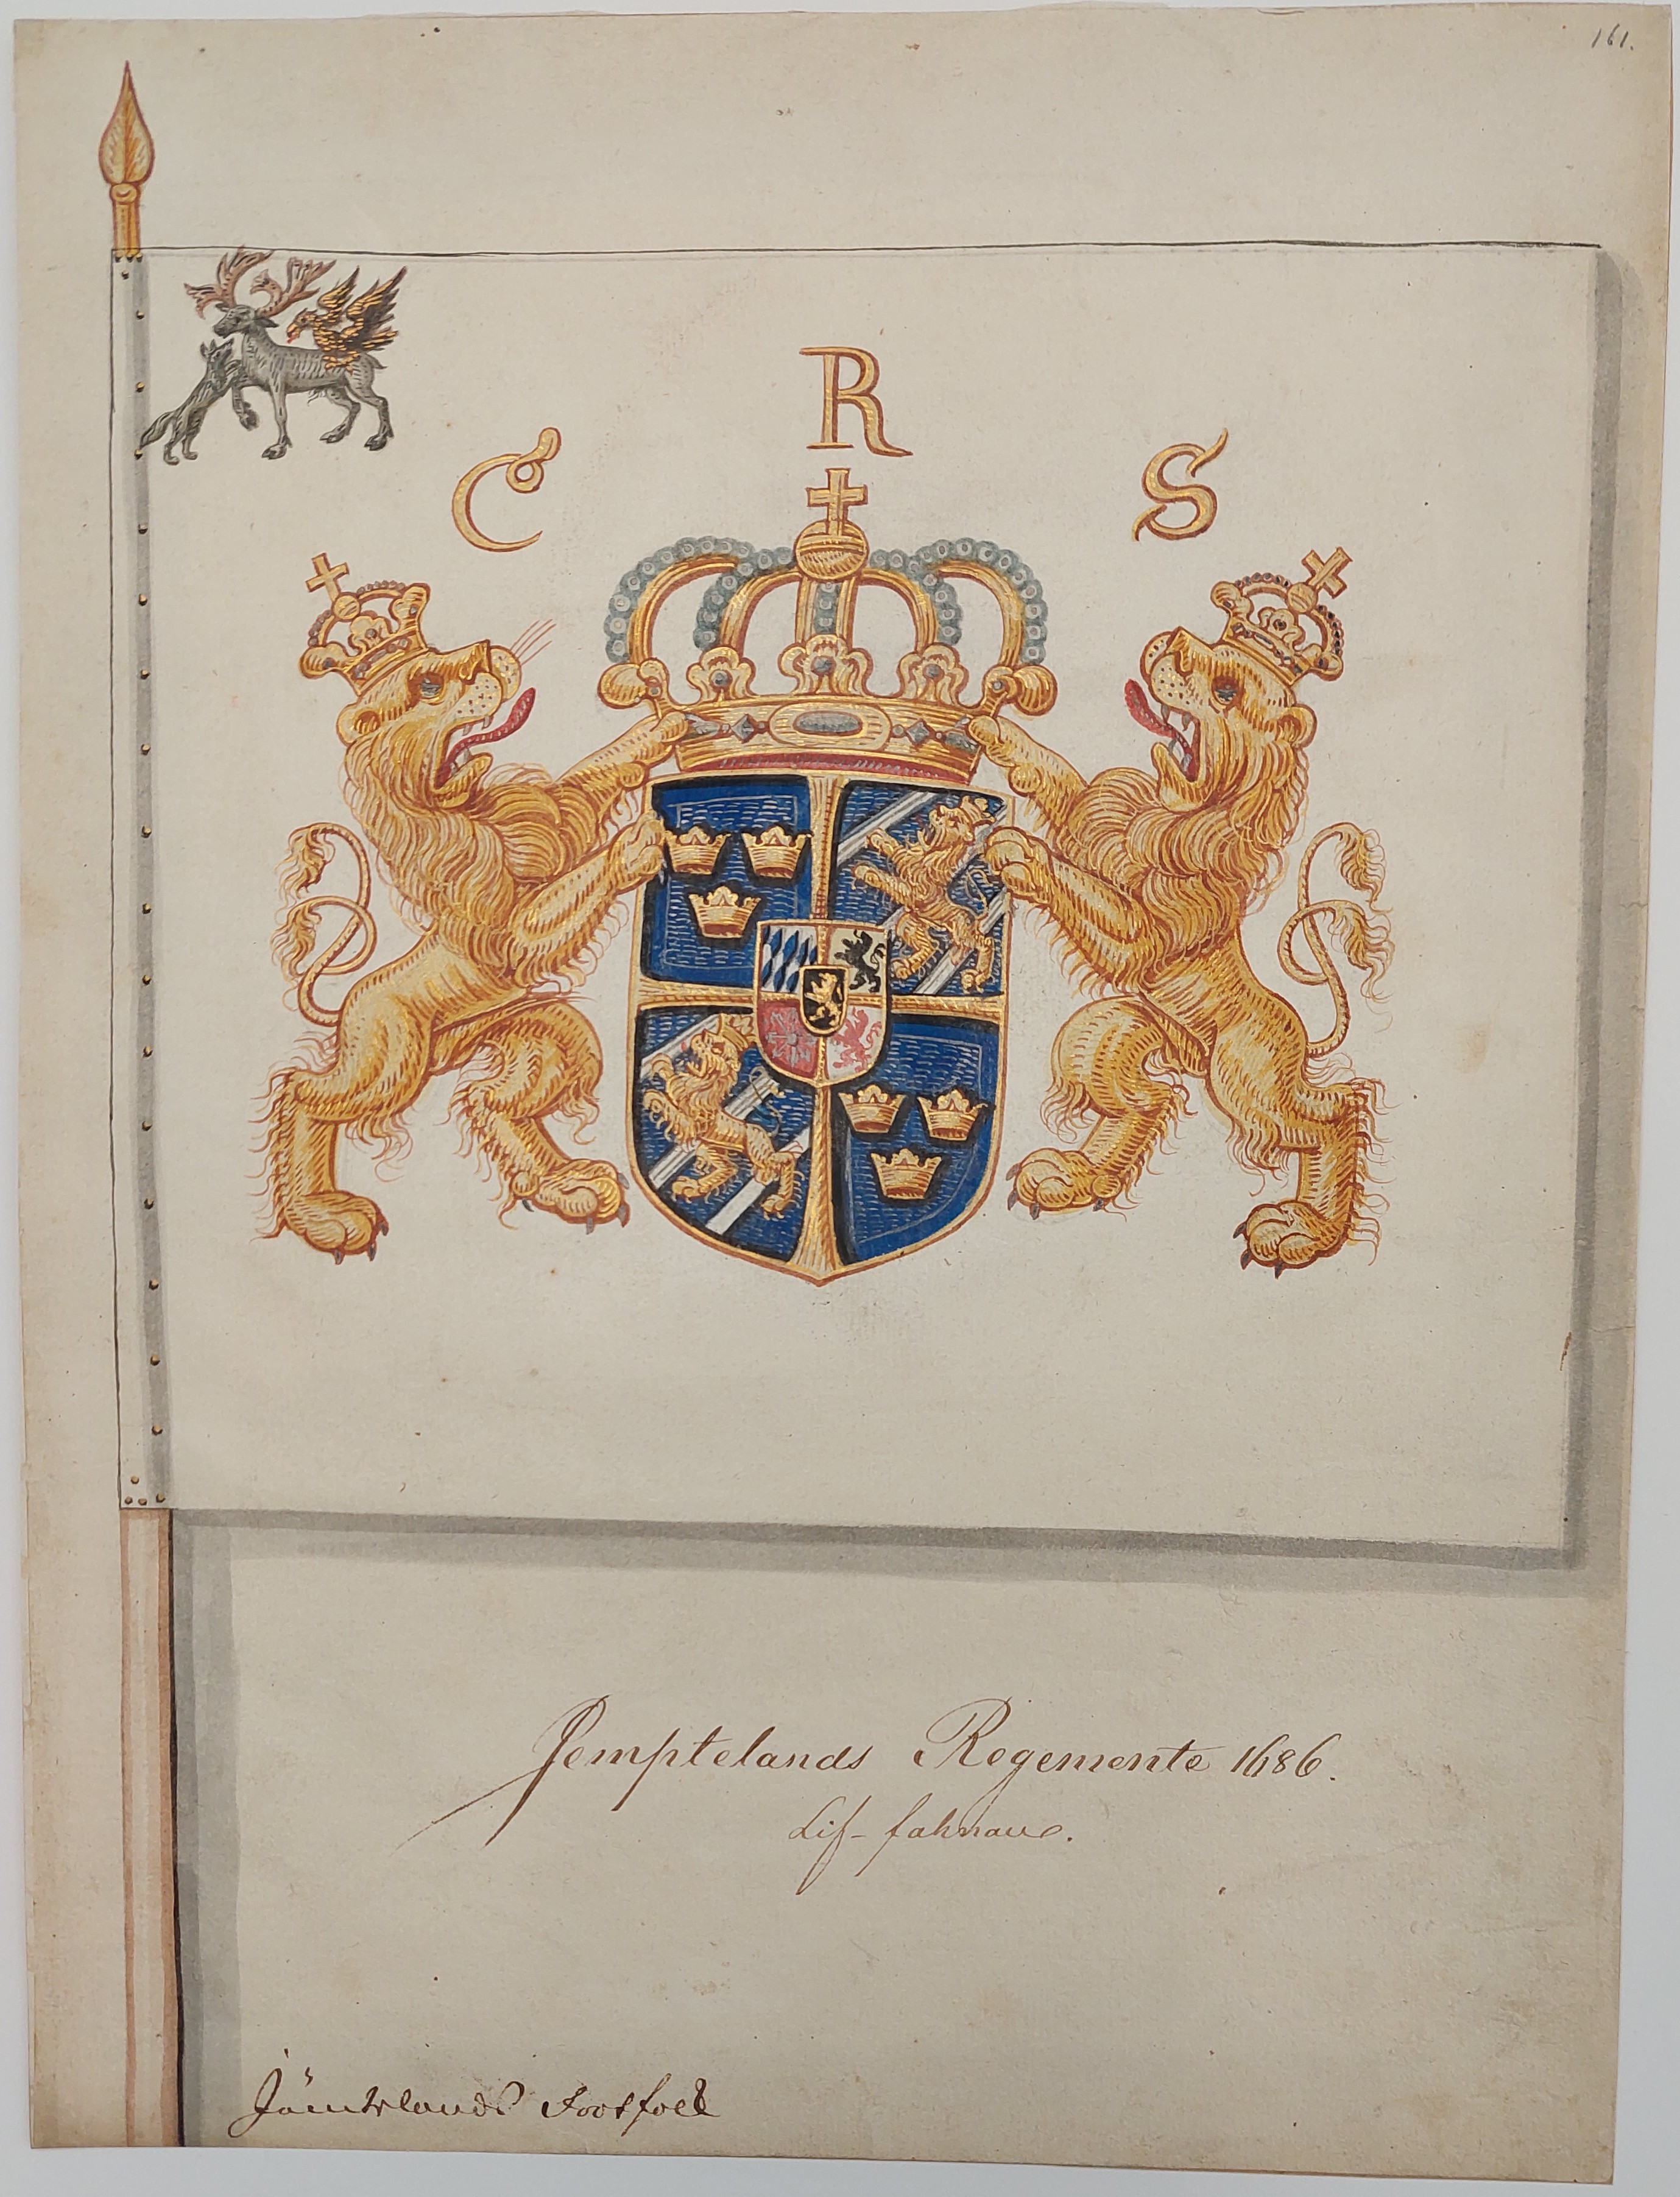 161.
C R S
Jemptelands Regemente 1686.
Lif-fahnan.
Jämtelands Footfolk